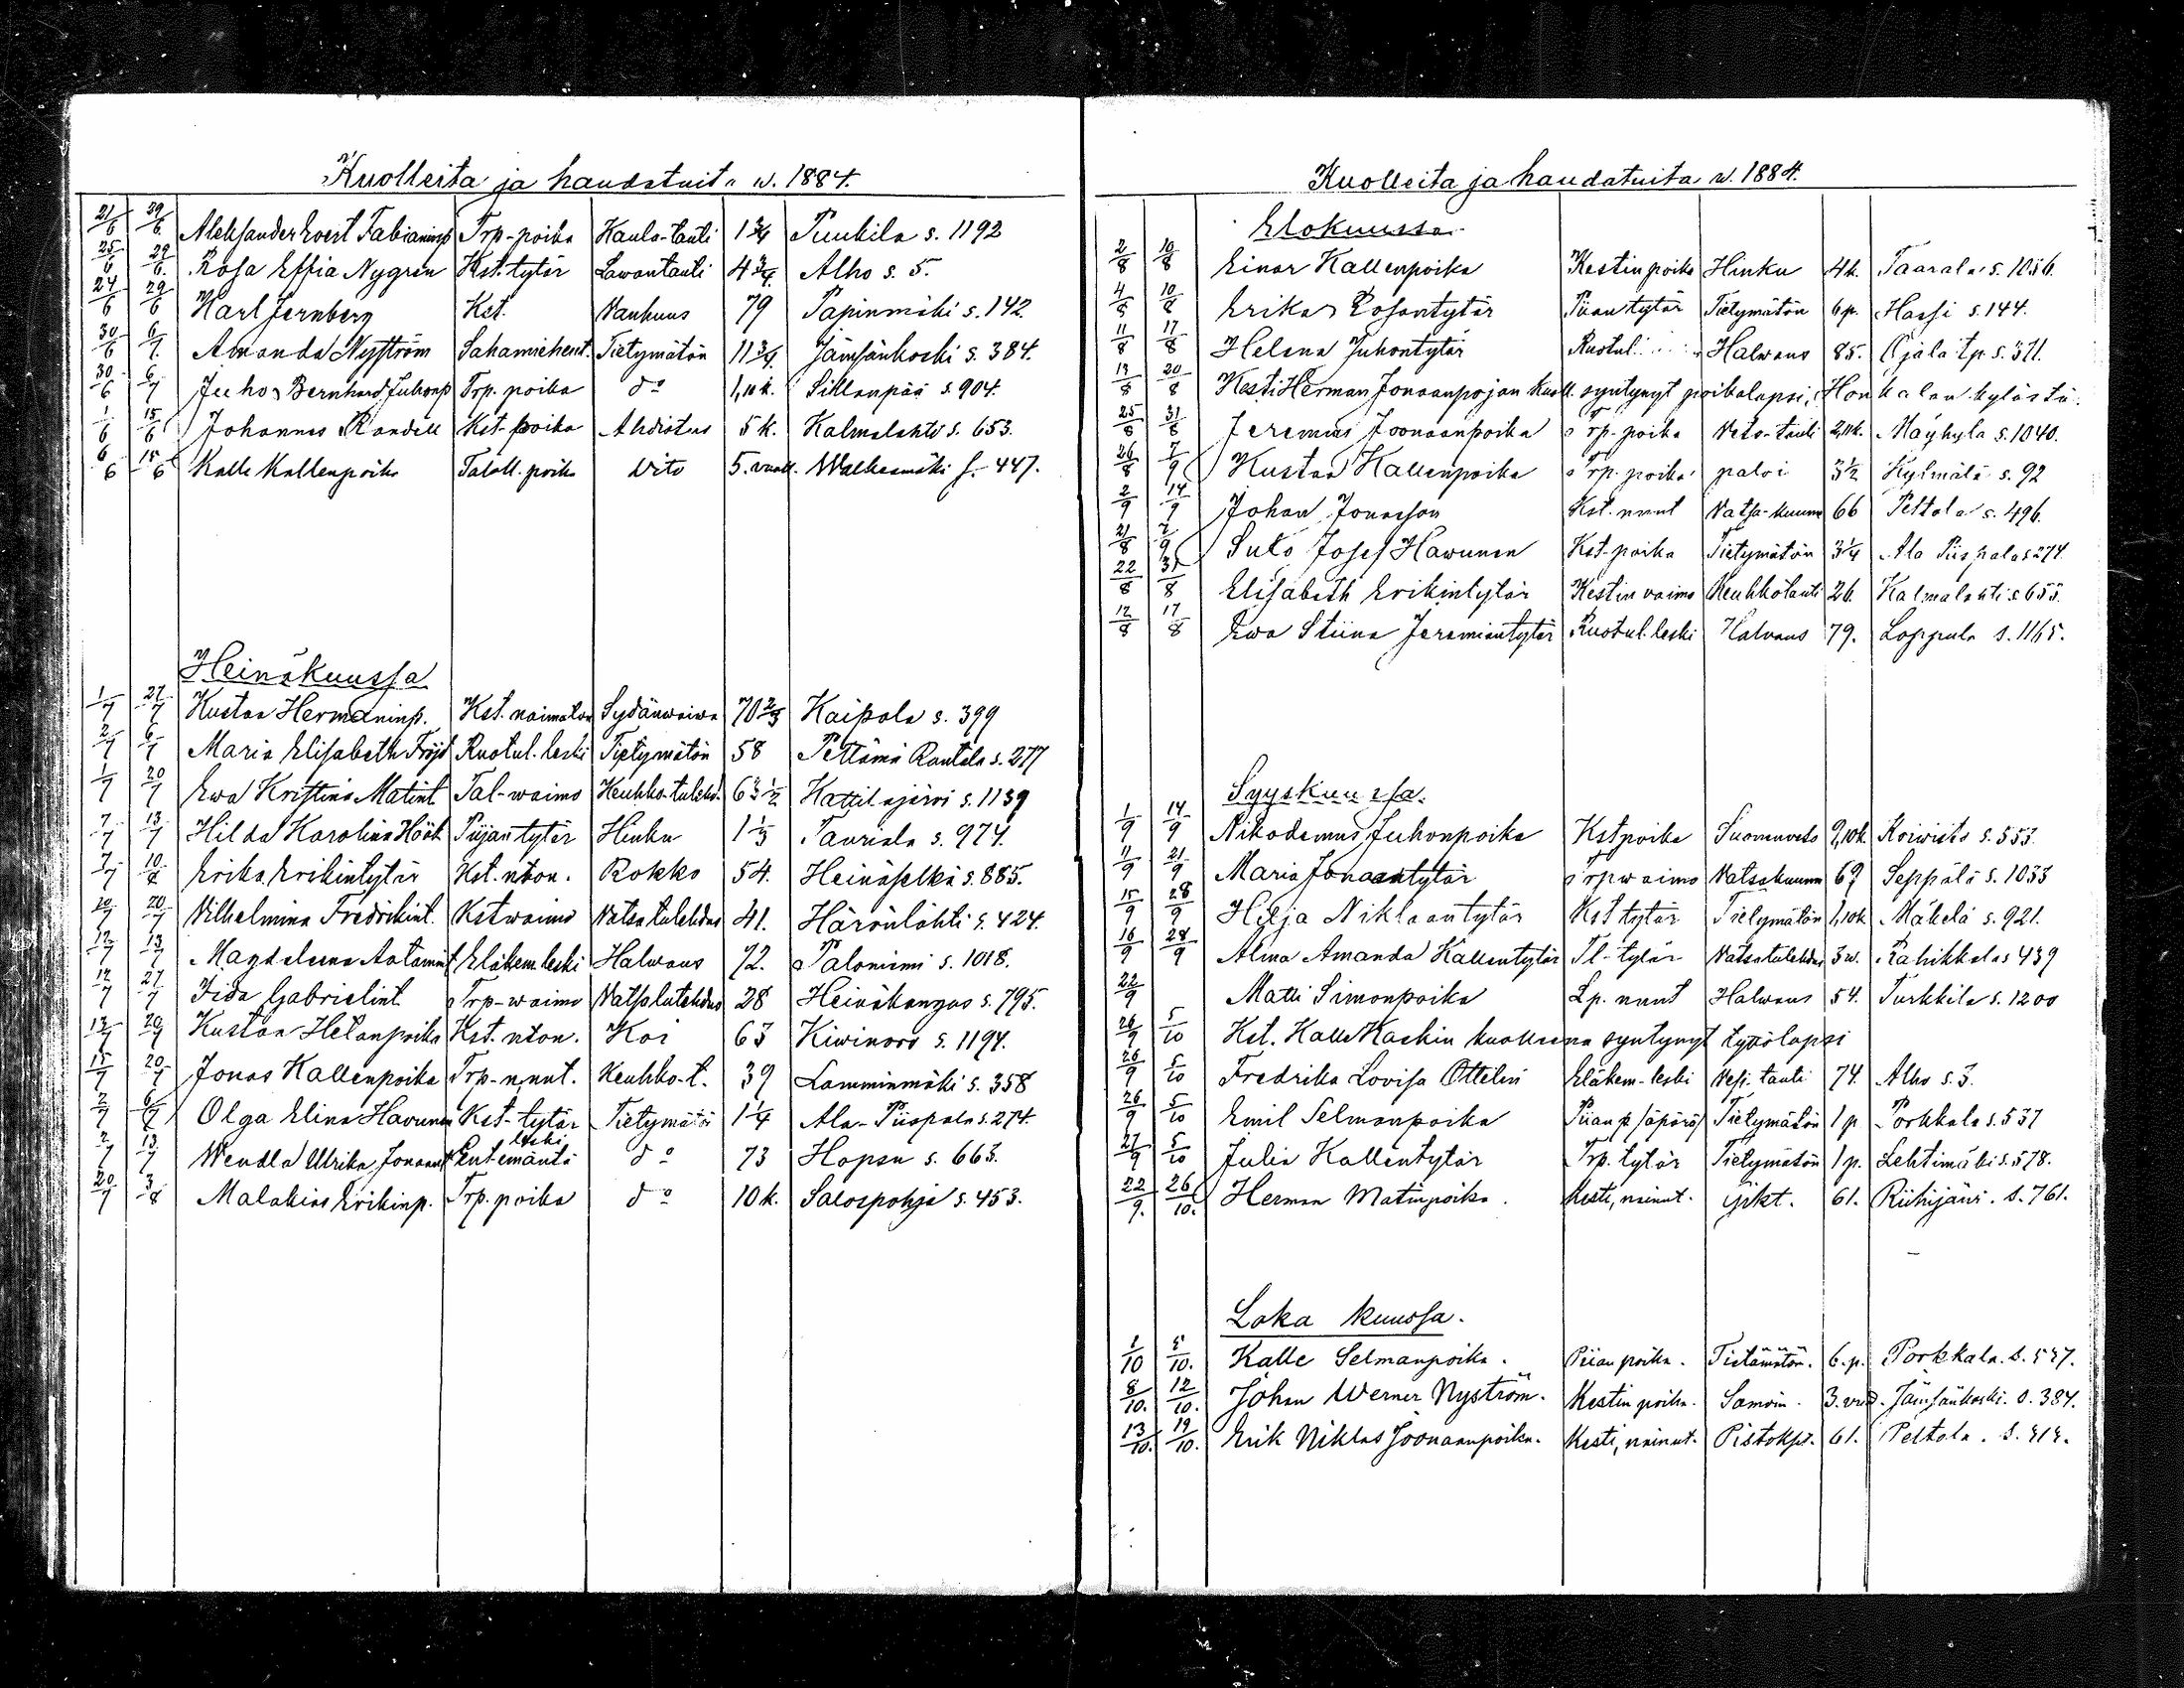 Kuolleita ja haudatuita w. 1884.
21/6 29/6 Aleksander Evert Fabianinp Trp-poika Kaula-tauti 1 3/4 Puukila s. 1192
25/6 29/6 Rosa Effia Nygren Kst. tytär Lavantauti 4 3/4 Alho s. 5.
24/6 29/6 Karl Jernberg Kst. Vanhuus 79 Papinmäki s. 142
30/6 6/7 Amanda Nyström Sahamiehent. Tietymätön 11 3/4 Jämsänkoski s. 384.
30/6 6/7 Juho Bernhard Juhonp Trp. poika do 1,10 k. Sillanpää s. 904.
1/6 15/6 Johannes Randell Kst-poika Ahdistus 5 k. Kalmalahti s. 653.
6/6 15/6 Kalle Kallenpoika Taloll. poika dito 5. vuod. Walkeamäki s. 447.
Heinäkuussa
1/7 27/7 Kustaa Hermaninp. Kst. naimaton Sydänwaiwa 70 2/3 Kaipola s. 399
2/7 6/7 Maria Elisabeth Fröjd Ruotul. leski Tietymätön 58 Pettämä Rantala s. 277
1/7 20/7 Ewa Kristiina Matint Tal-waimo Keuhko-tulehd. 63 1/2 Kattilajärvi s. 1139
7/7 13/7 Hilda Karolina Höök Piijan tytär Hinku 1 1/3 Tauriala s. 974.
7/7 10/8 Erika Erikintytär Kst. nton. Rokko 54. Heinäselkä s. 885.
10/7 20/7 Vilhelmina Fredrikint. Kst waimo Vatsatulehdus 41. Härönlahti s. 424.
12/7 13/7 Magdaleena Aatamint Eläkem leski Halwaus 72. Paloniemi s. 1018.
12/7 27/7 Iida Gabrielint. Trp-waimo Vatsatulehdus 28 Heinäkangas s. 795.
13/7 20/7 Kustaa Helanpoika Kst. nton. Koi 63 Kiwinoro s. 1194.
15/7 20/7 Jonas Kallenpoika Trp-n.nut. Keuhko-t. 39 Lamminmäki s. 358
2/7 6/7 Olga Elina Havunen Kst-tytär Tietymätö 1 1/4 Ala-Piispala s. 274.
2/7 13/7 Wendla Ulrika Jonaant Ent emäntä leski do 73 Hopsu s. 663.
20/7 3/8 Malakias Erikinp. Trp. poika do 10 k. Salospohja s. 453.
Kuolleita ja haudatuita w. 1884.
Elokuussa
2/8 10/8 Einar Kallenpoika Kestin poika Hinku 4 k. Taarala s. 1036.
4/8 10/8 Erika Rosantytär Piian tytär Tietymätön 6 p. Hassi s. 144.
11/8 17/8 Helena Juhontytär Ruotul. Halwaus 85. Ojala tp s. 371.
13/8 20/8 Kesti Herman Jonaanpojan kuoll. syntynyt poikalapsi, Honkalan kylästä.
25/8 31/8 Jeremias Joonaanpoika Trp. poika Veto-tauti 2,11k. Mäyhylä s. 1040.
26/8 7/9 Kustaa Kallenpoika Trp. poika paloi 3 1/2 Kylmälä s. 92
2/9 14/9 Johan Jonasson Kst. nnut Vatsa-kuume 66 Peltola s. 496.
21/8 7/9 Sulo Josef Hawunen Kst-poika Tietymätön 3 1/4 Ala Piispala s 274.
22/8 31/8 Elisabeth Erikintytär Kestin vaimo Keuhkotauti 26. Kalmalahti s. 655.
12/8 17/8 Ewa Stiina Jeremiantytär Ruotul. leski Halvaus 79. Loppula s. 1165.
Syyskuussa.
1/9 14/9 Nikodemus Juhonpoika Kstpoika Suonenveto 9,10k. Koiwisto s. 553.
11/9 21/9 Maria Jonaantytär Trpwaimo Vatsakuume 69 Seppälä s. 1033
15/9 28/9 Hilja Niklaantytär Kst tytär Tietymätön 1,10k Mäkelä s. 921.
16/9 28/9 Alma Amanda Kallentytär Tl-tytär Vatsatulehdus 3w. Rahikkala s 439
22/9 Matti Simonpoika Lp. nnut Halwaus 54. Turkkila s. 1200
26/9 5/10 Kst. Kalle Kaskin kuolleena syntynyt tyttölapsi
26/9 5/10 Fredrika Lovisa Ottelin Eläkem-leski Vesi-tauti 74. Alho s. 3.
26/9 5/10 Emil Selmanpoika Piian p. /äpärä/ Tietymätön 1 p Porkkala s. 537
27/9 5/10 Julia Kallentytär Trp. tytär Tietymätön 1 p. Lehtimäki s. 578.
22/9. 26/10. Herman Matinpoika. Kesti, nainut. ijäkt. 61. Riihijärvi. s. 761.
Loka kuussa.
1/10 5/10. Kalle Selmanpoika. Piian poika. Tietämätön. 6. p. Porkkala. s. 537.
8/10. 12/10. Johan Werner Nyström. Kestin poika. Samoin. 3. vuod. Jämsänkoski. s. 384.
13/10. 19/10. Erik Niklas Joonaanpoika. Kesti, nainut. Pistoksi. 61. Peltola. s.